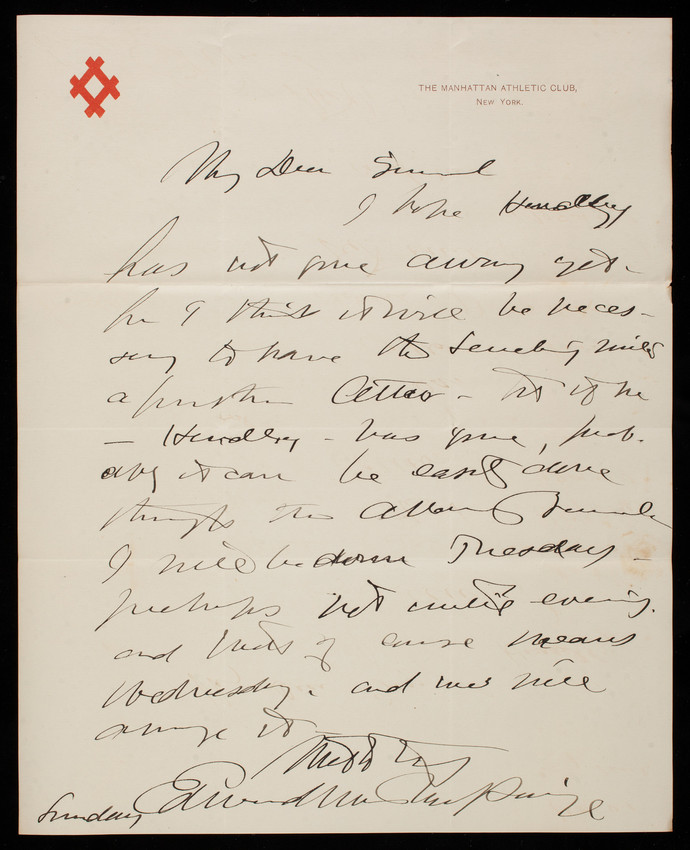 THE MANHATTAN ATHLETIC CLUB,
NEW YORK.
My Dear General
I hope Hendley
has not gone away yet -
for I think it will be neces-
sary to have the
a further letter - but if he
- Hendley - has gone, prob-
ably it can be easily done
through the
I will be down Tuesday -
perhaps not until evening.
and that of course means
Wednesday. and we will
arrange it -
Truly
Sunday